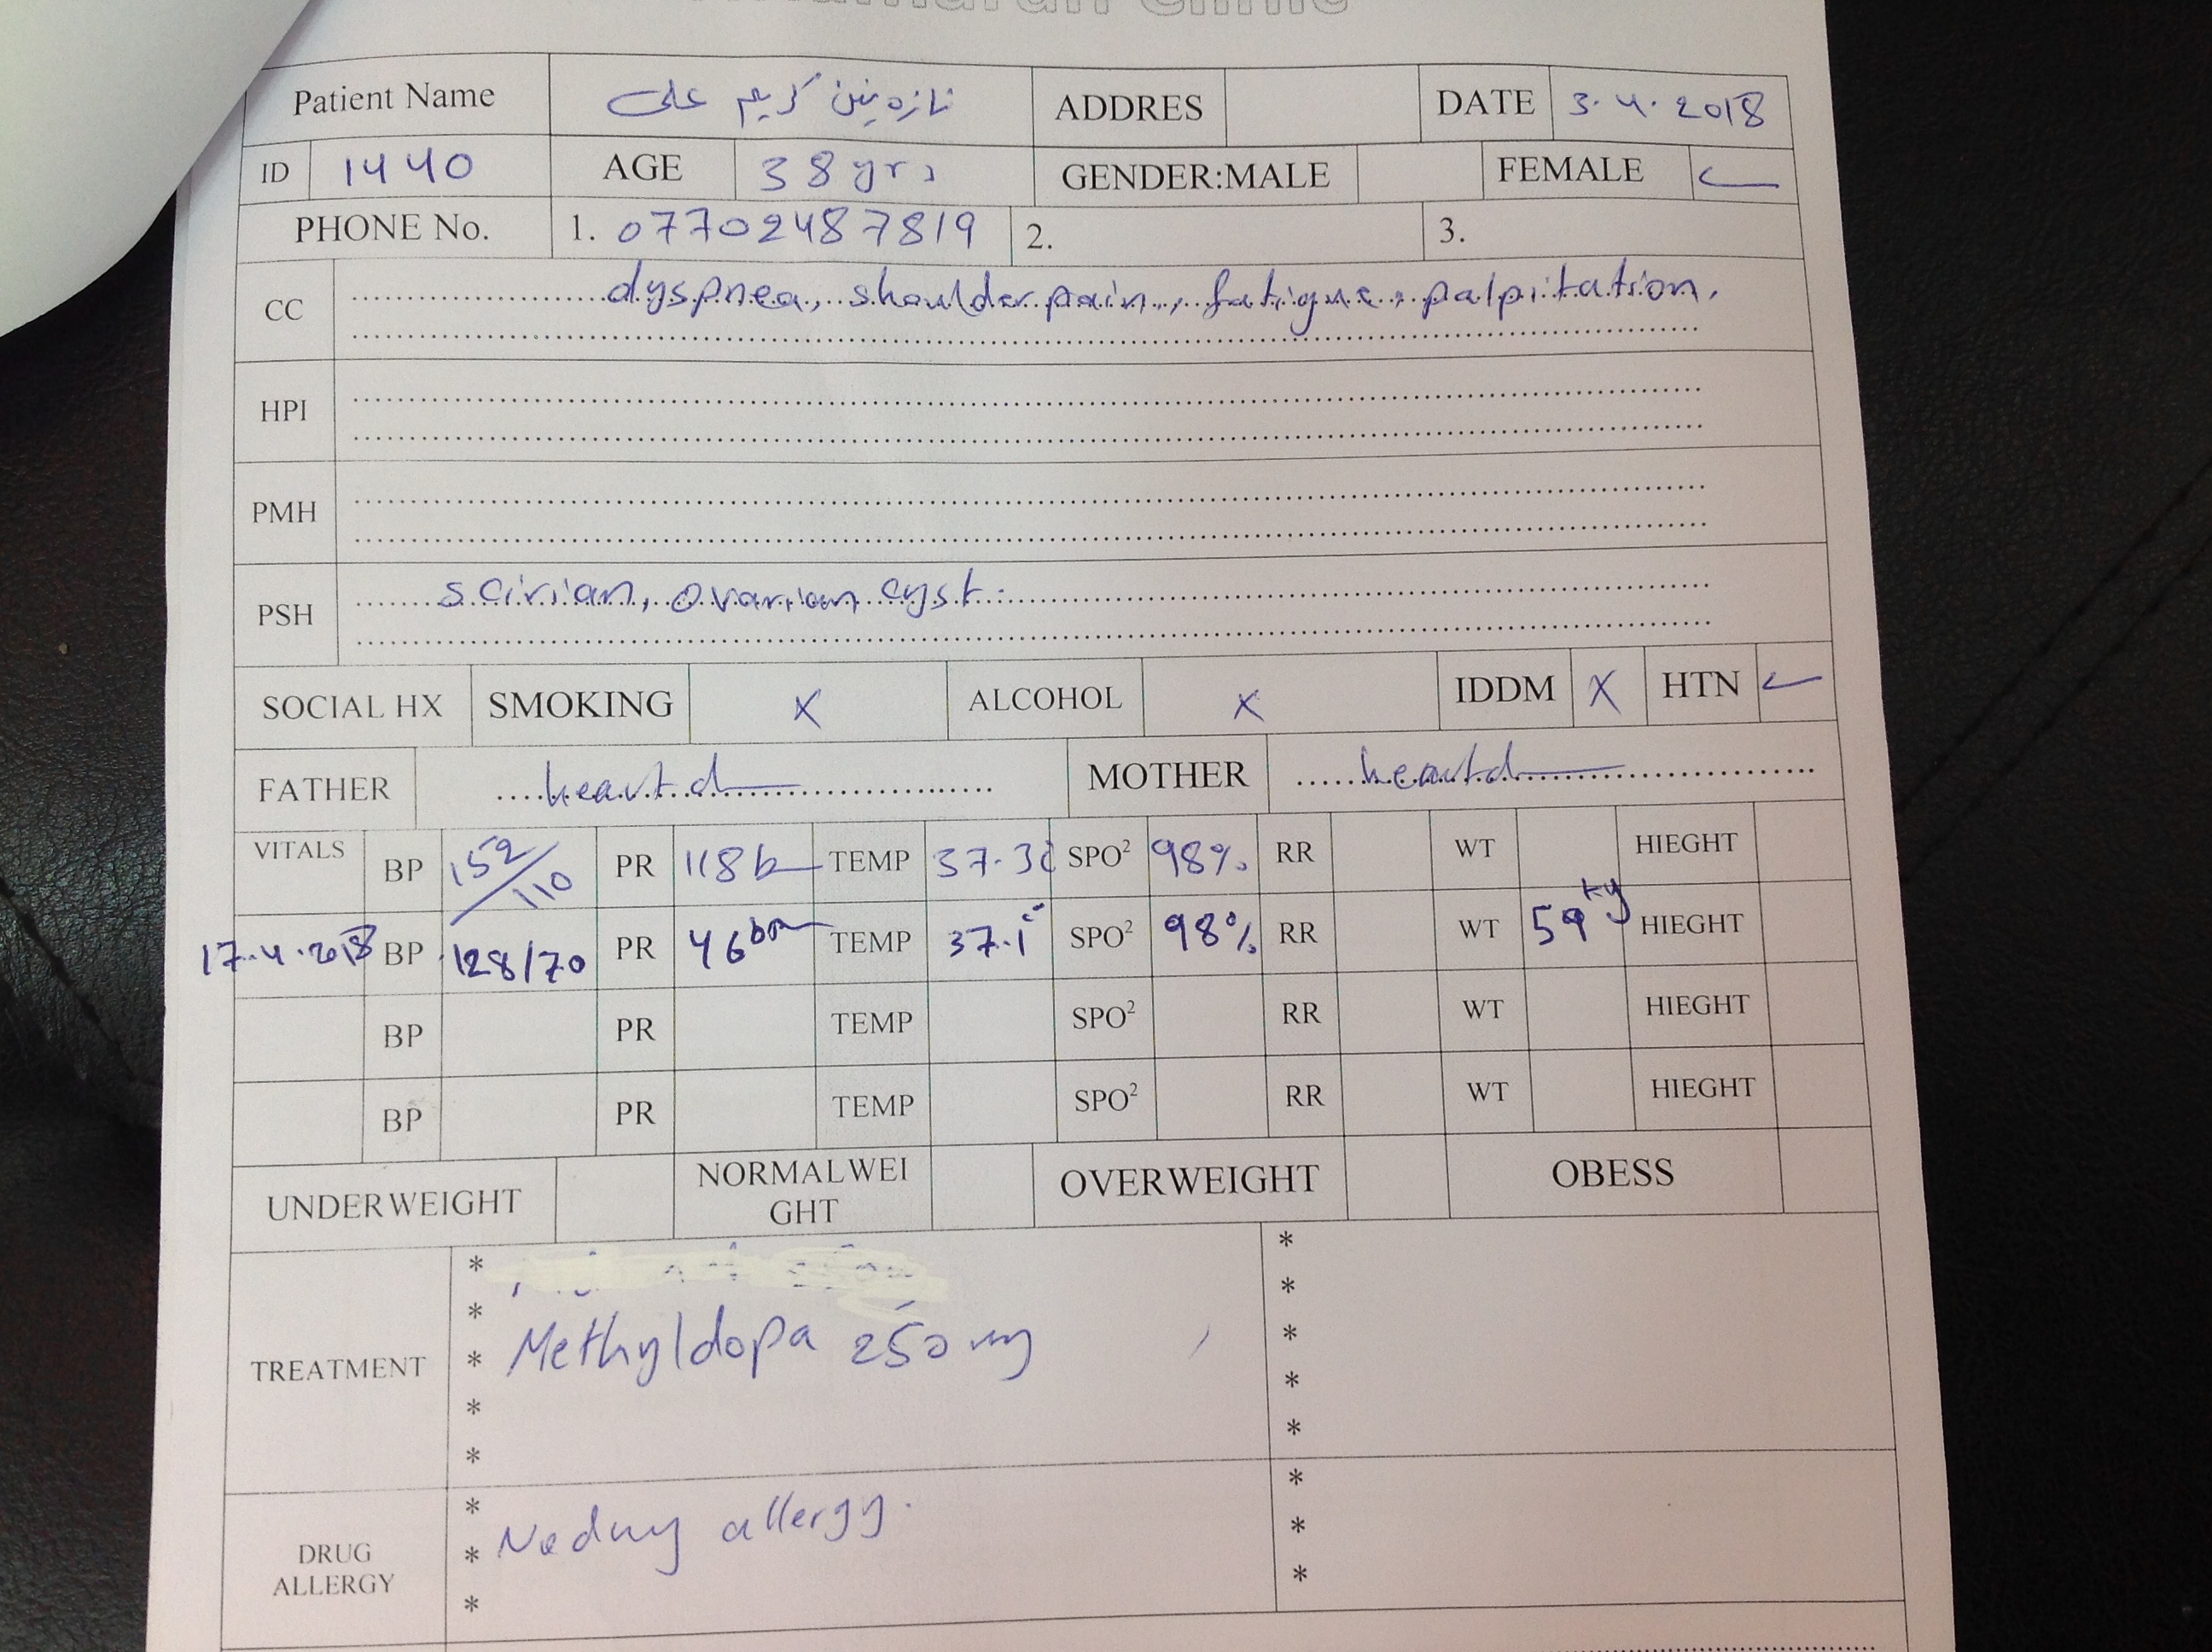 Clinic
Patient Name نازەنین کریم علی ADDRES DATE 3.4.2018
ID 1440 AGE 38 yrs GENDER:MALE FEMALE ✓
PHONE No. 1. 07702487819 2. 3.
CC dyspnea, shoulder pain, fatigue, palpitation,
HPI
PMH
PSH scirian, ovarian cyst.
SOCIAL HX SMOKING X ALCOHOL X IDDM X HTN ✓
FATHER heart d MOTHER heart d
VITALS BP 152/110 PR 118 b TEMP 37.3c SPO² 98% RR WT HIEGHT
17.4.2018 BP 128/70 PR 46 bm TEMP 37.1c SPO² 98% RR WT 59 kg HIEGHT
BP PR TEMP SPO² RR WT HIEGHT
BP PR TEMP SPO² RR WT HIEGHT
UNDERWEIGHT NORMALWEI
GHT OVERWEIGHT OBESS
TREATMENT * *
* *
* Methyldopa 250 mg *
* *
* *
DRUG
ALLERGY * No drug allergy. *
* *
* *